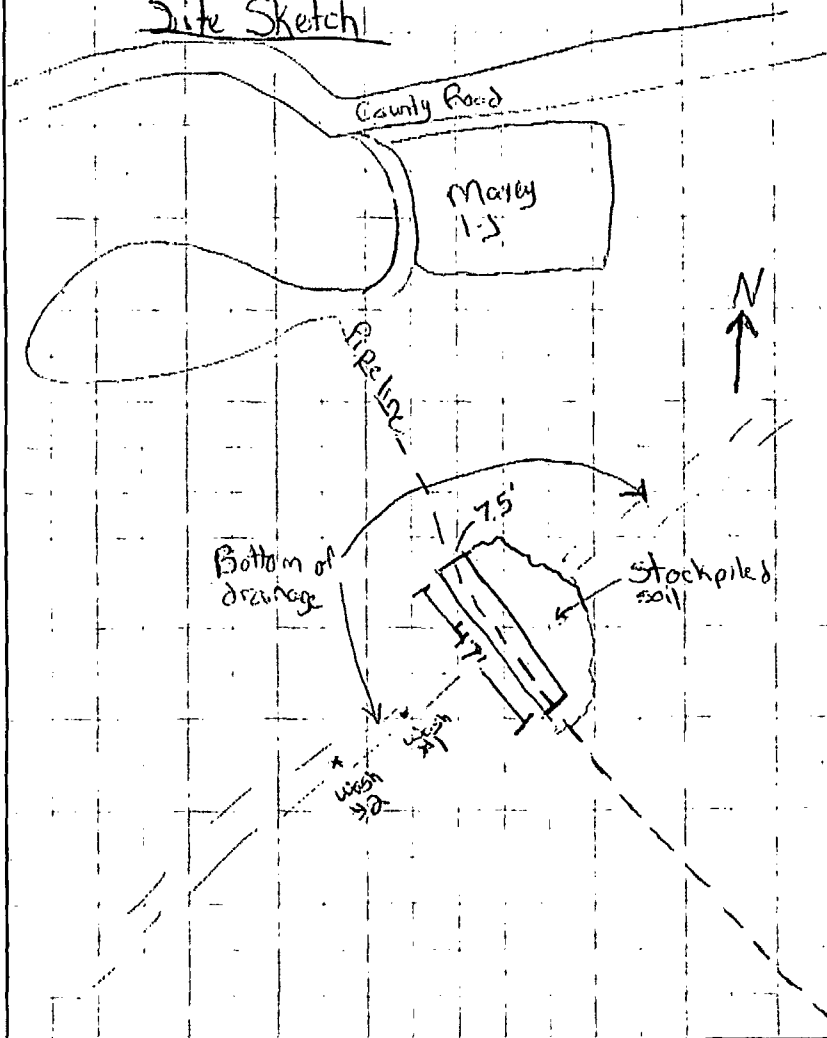 Site Sketch
County Road
1-J
N
Pipeline
7.5'
Bottom of
drainage
Stockpiled
soil
47'
wash
#1
wash
#2